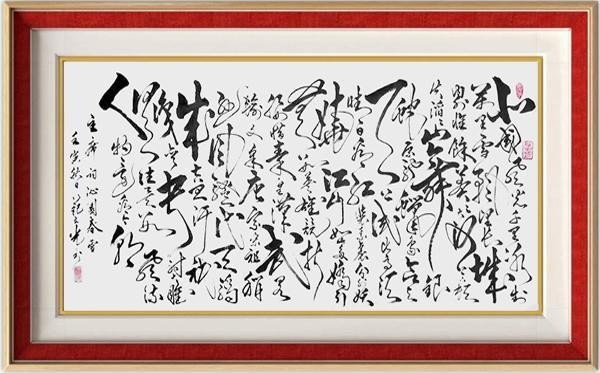 北国风光千里冰封
万里雪飘望长城
内外惟余莽莽大河上下顿
失滔滔山舞银
蛇原驰蜡象欲与
天公试比高须
晴日看红装素裹分外妖
娆江山如此多娇引
无数英雄竞折
腰惜秦皇汉武略
输文采唐宗宋祖稍
逊风骚一代天骄
成吉思汗只识
弯弓射大雕
俱往矣数风流
人物还看今朝
主席词沁园春雪
壬寅秋日 书